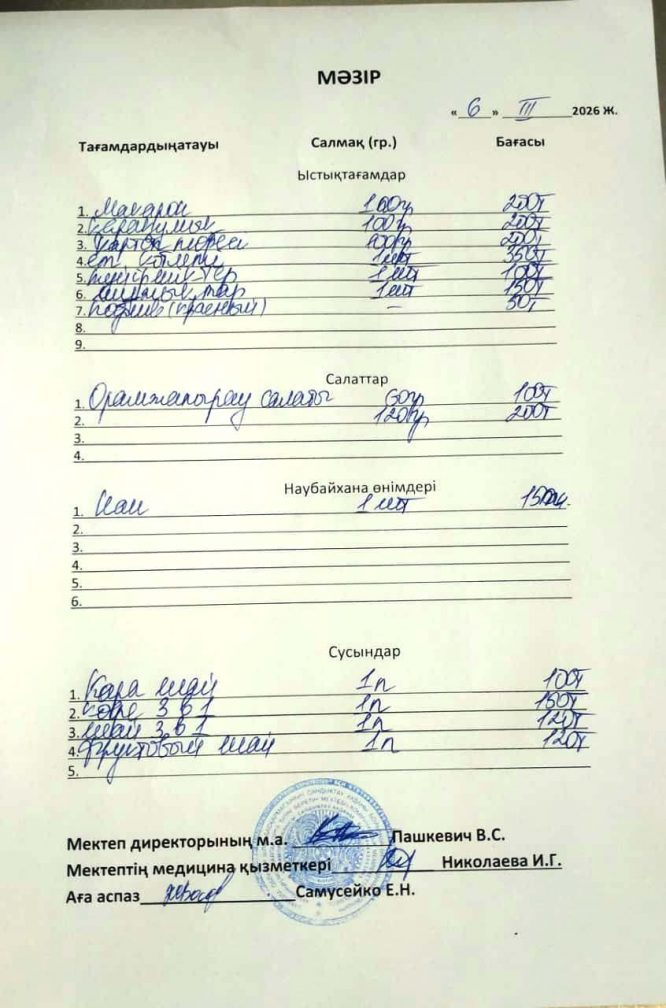 МӘЗІР
« 6 » III 2026 Ж.
Тағамдардыңатауы Салмақ (гр.) Бағасы
Ыстықтағамдар
1. Макарон 100гр 200т
2. Қарақұмық 100гр 200т
3. Картоп пюреси 100гр 200т
4. ет котлеті 1шт 350т
5. 1шт 100т
6. 1шт 150т
7. (красный) – 50т
8.
9.
Салаттар
1. Орамжапырақ салаты 60гр 100т
2. 120гр 200т
3.
4.
Наубайхана өнімдері
1. Нан 1 шт
2.
3.
4.
5.
6.
Сусындар
1. Кара шай 1п 100т
2. кофе 3 в 1 1п 150т
3. шай 3 в 1 1п 120т
4. Фруктовый шай 1п 120т
5.
Мектеп директорының м.а. Пашкевич В.С.
Мектептің медицина қызметкері Николаева И.Г.
Аға аспаз Самусейко Е.Н.